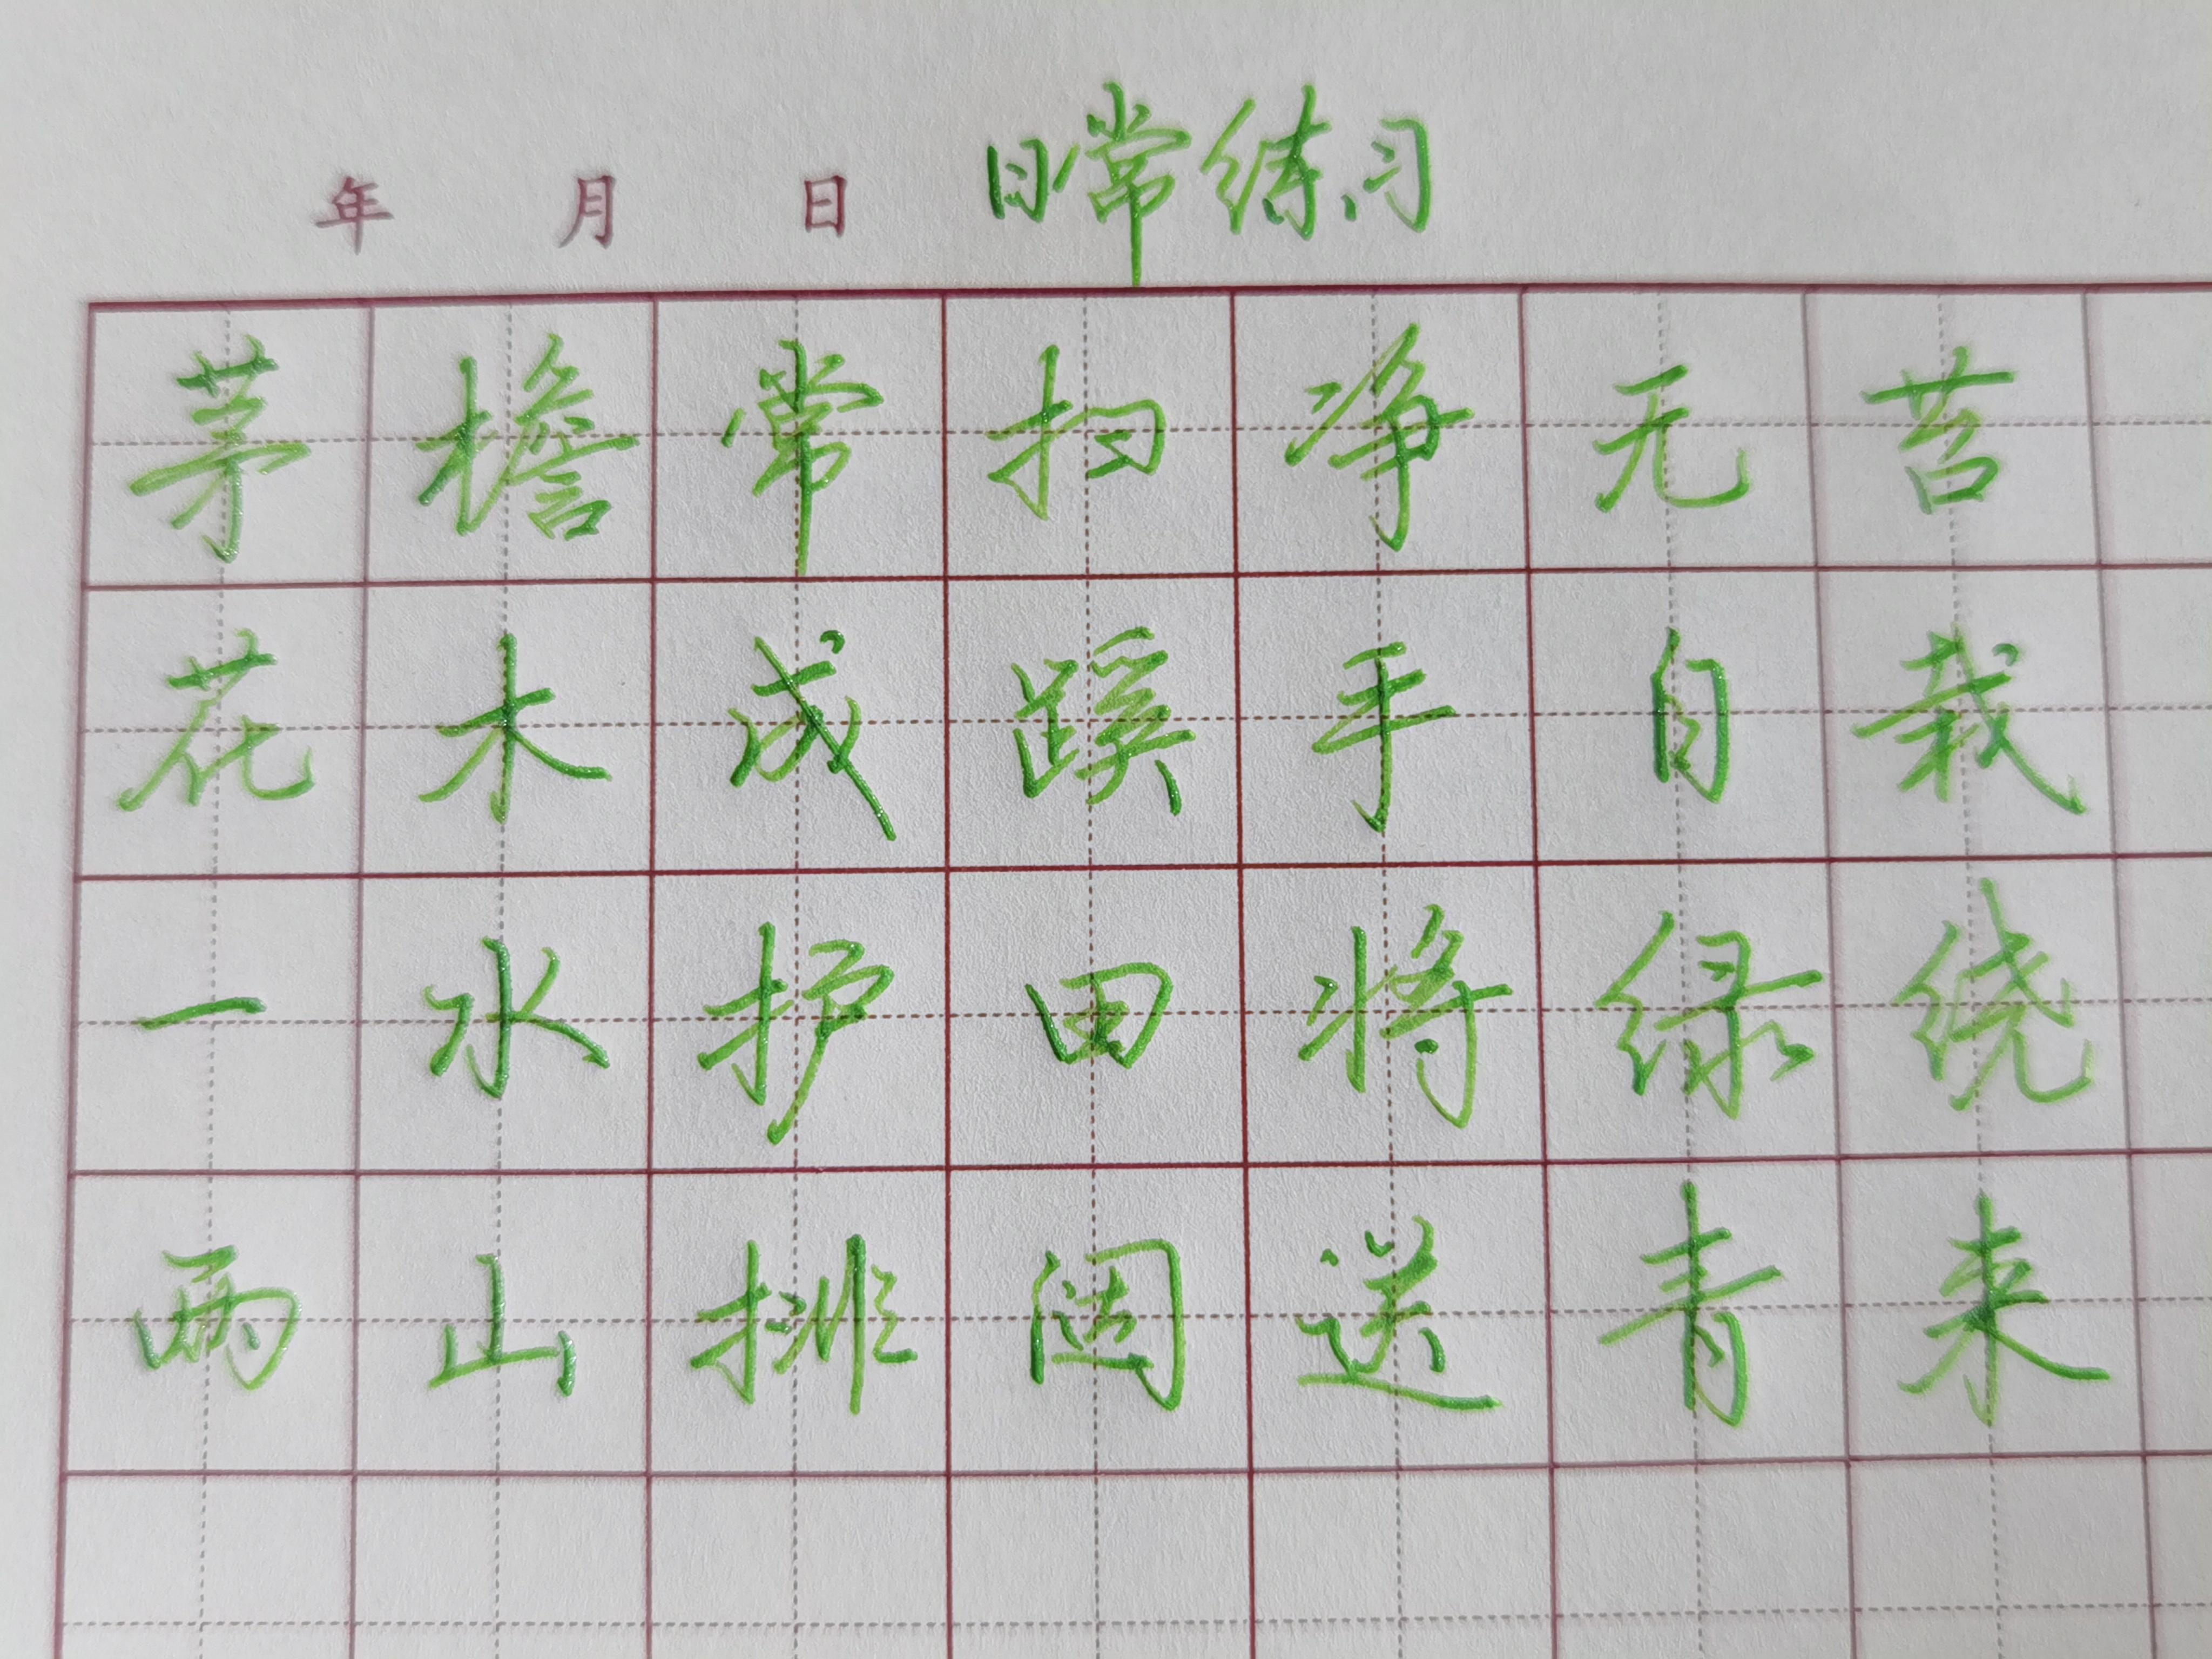 年 月 日 日常练习
茅檐常扫净无苔
花木成蹊手自栽
一水护田将绿绕
两山排闼送青来